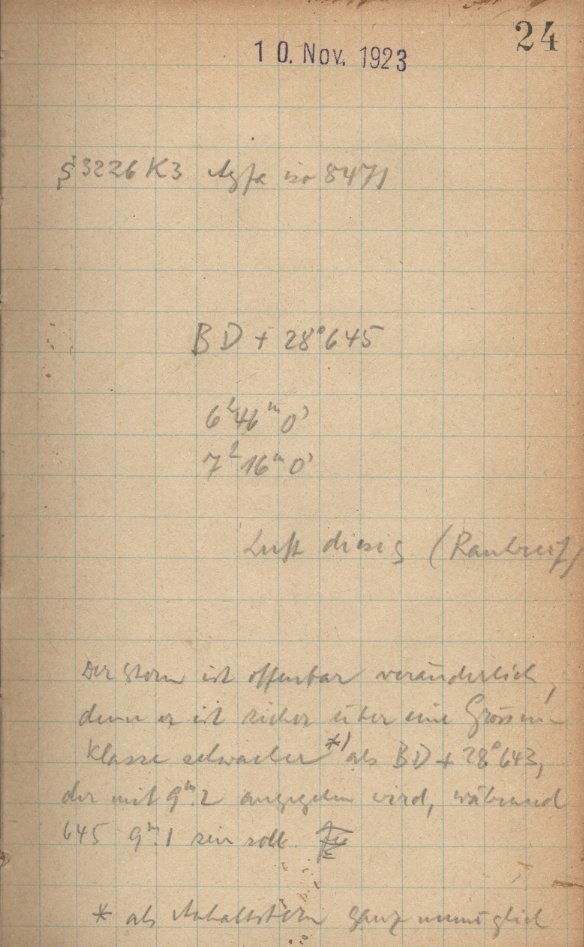 24
10. Nov. 1923
§ 3226 K3 Agfa iso 8471
BD + 28°645
6h46m0s
7h16m0s
Luft diesig (Rauhreif)
Der Stern ist offenbar veränderlich,
denn er ist sicher über eine Grössen-
klasse schwächer *) als BD + 28°643,
der mit 9m.2 angegeben wird, während
645 9m.1 sein soll.
* als Anhaltstern ganz unmöglich